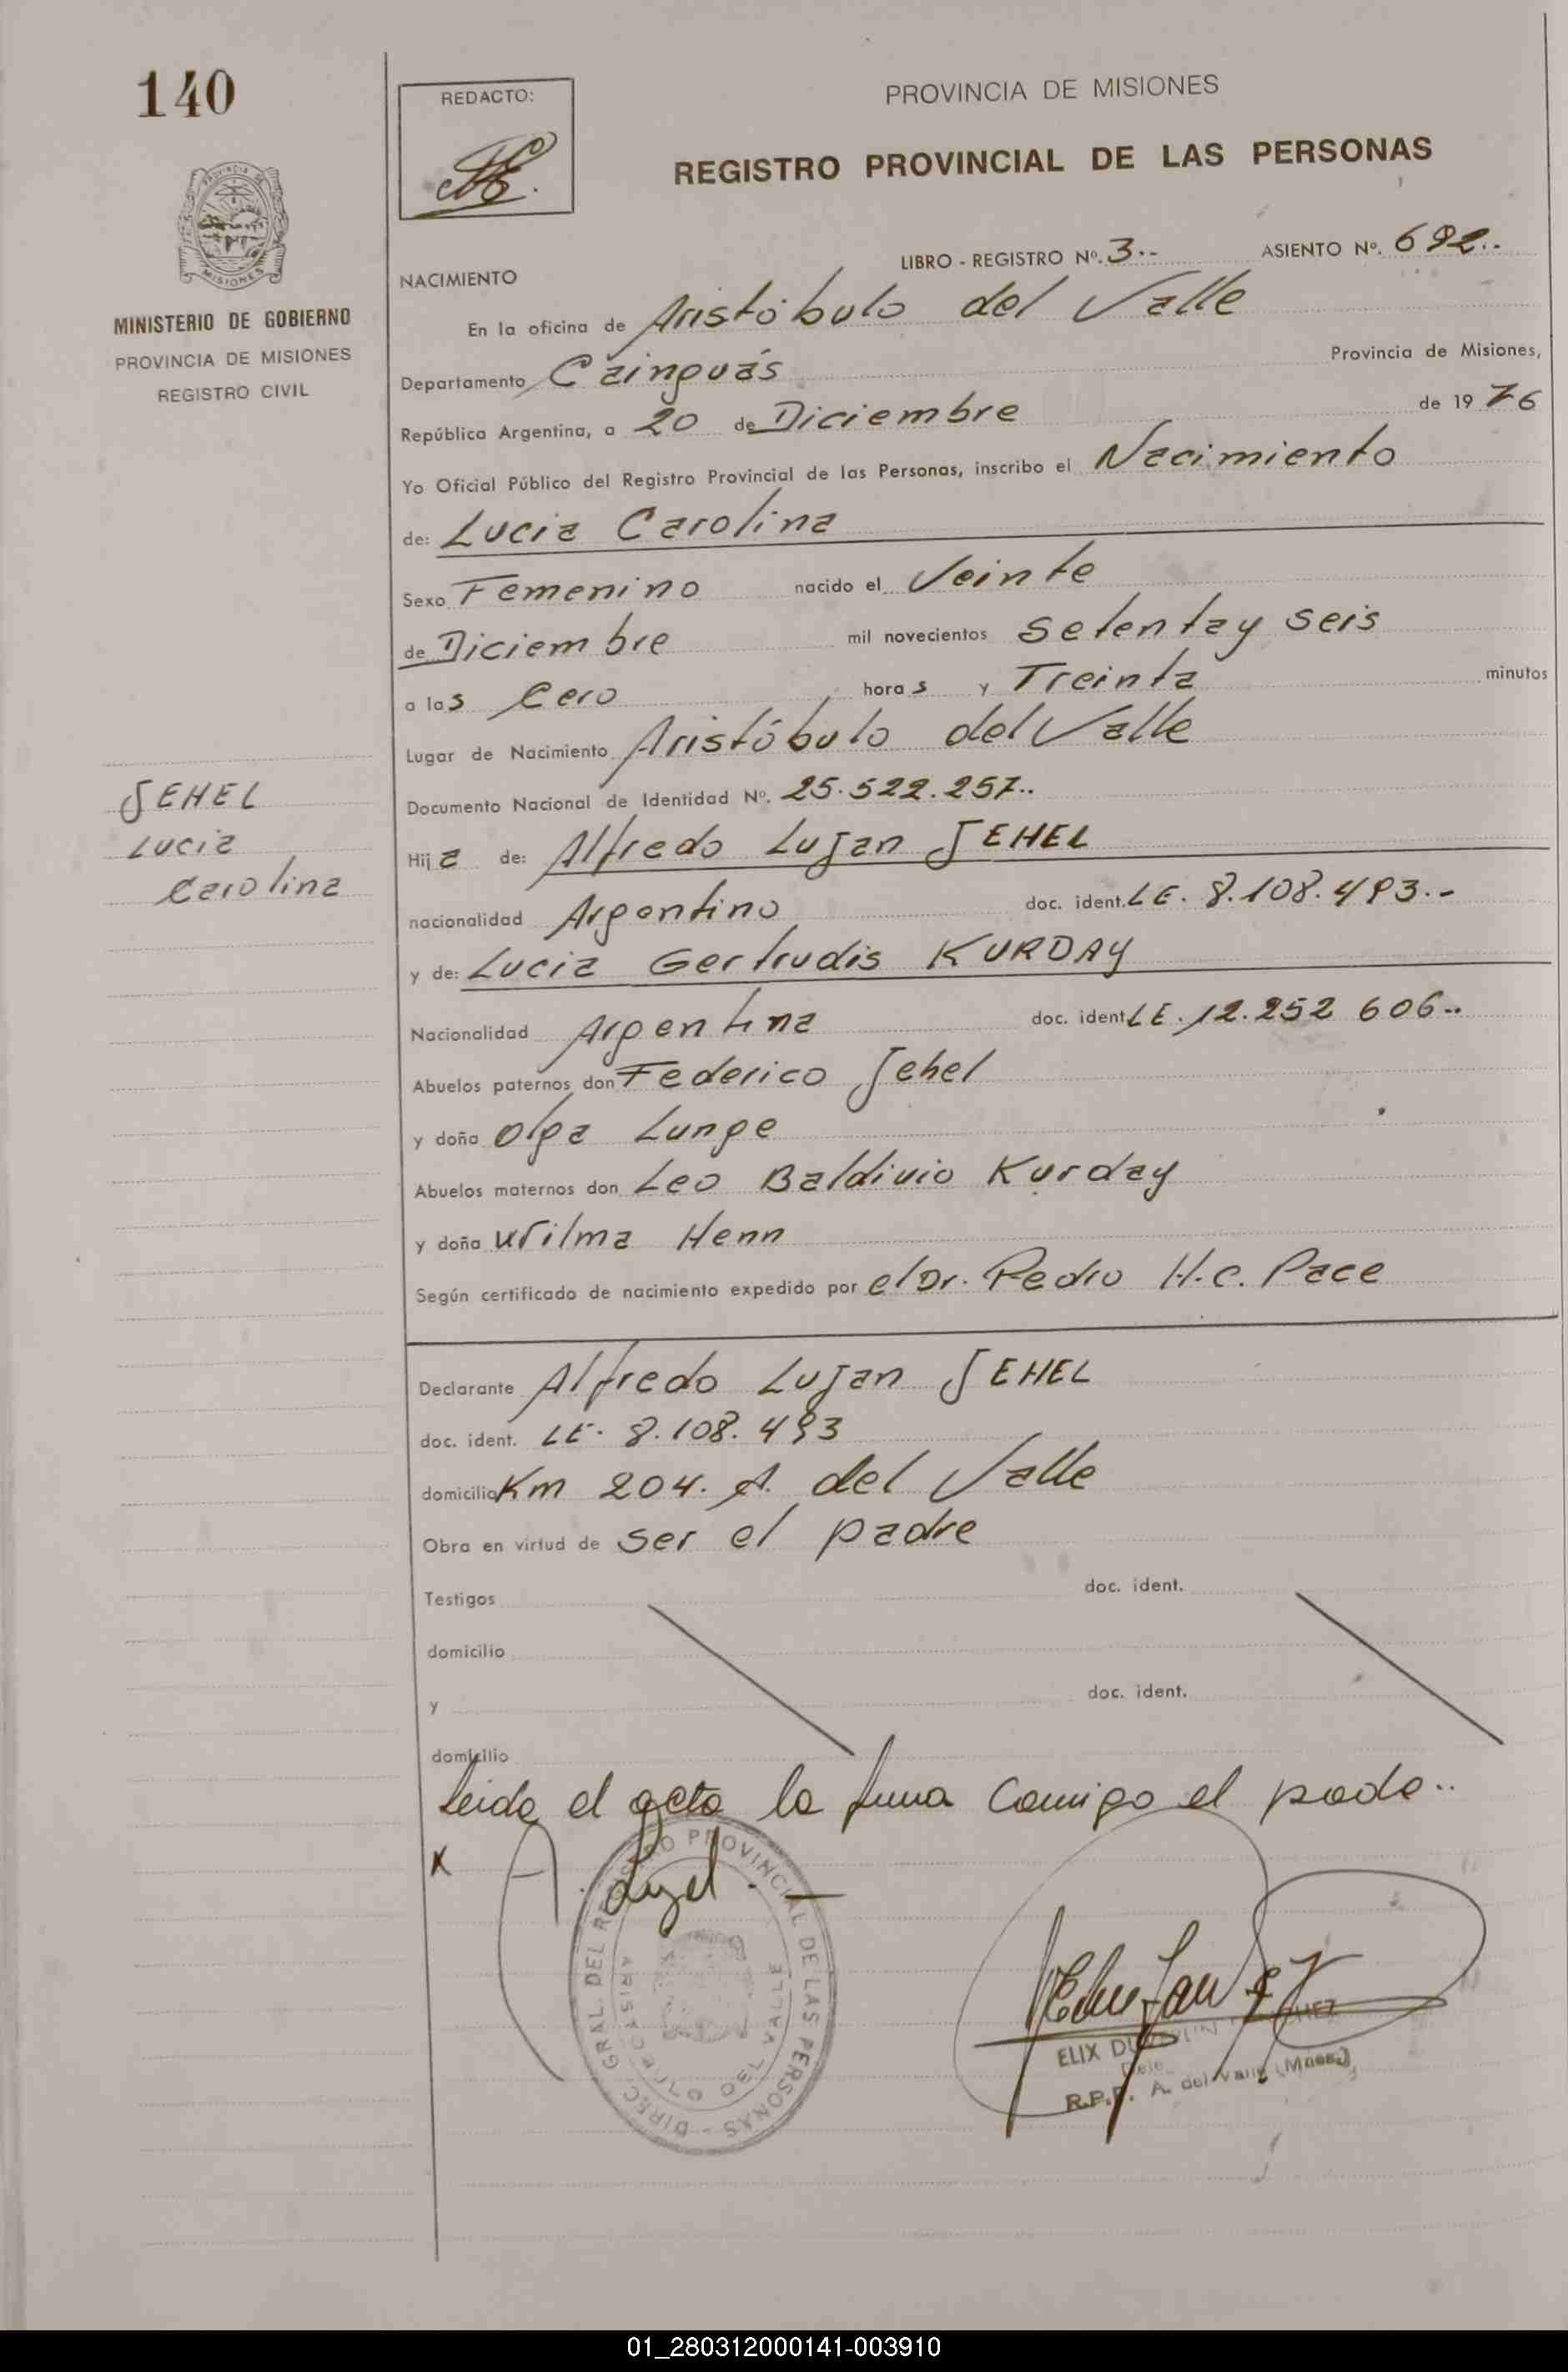 140
REDACTO:
PROVINCIA DE MISIONES
REGISTRO PROVINCIAL DE LAS PERSONAS
MISIONES
MINISTERIO DE GOBIERNO
PROVINCIA DE MISIONES
REGISTRO CIVIL
LIBRO - REGISTRO Nº. 3.-- ASIENTO Nº. 692..
NACIMIENTO
En la oficina de Aristóbulo del Valle
Departamento Cainguás Provincia de Misiones,
República Argentina, a 20 de Diciembre de 1976
Yo Oficial Público del Registro Provincial de las Personas, inscribo el Nacimiento
de: Lucia Carolina
Sexo Femenino nacido el Veinte
de Diciembre mil novecientos Setenta y seis
a las Cero horas y Treinta minutos
Lugar de Nacimiento Aristóbulo del Valle
Documento Nacional de Identidad Nº. 25.522.257..
JEHEL
Lucia
Carolina
Hija de: Alfredo Lujan JEHEL
nacionalidad Argentino doc. ident. LE. 8.108.493.-
y de: Lucia Gertrudis KURDAY
Nacionalidad Argentina doc. ident LE. 12.252 606..
Abuelos paternos don Federico Jehel
y doña Olga Lunge
Abuelos maternos don Leo Baldivio Kurday
y doña Wilma Henn
Según certificado de nacimiento expedido por el Dr. Pedro H.C. Pace
Declarante Alfredo Lujan JEHEL
doc. ident. LE. 8.108.493
domicilio Km 204. A. del Valle
Obra en virtud de ser el padre
Testigos doc. ident.
domicilio
y doc. ident.
domicilio
Leida el acta la firma Conmigo el padre..
x
DIREC. GRAL. DEL REGISTRO PROVINCIAL DE LAS PERSONAS -
ARISTOBULO DEL VALLE
ELIX
R.P.P. A. del Valle (Mnes.)
01_280312000141-003910